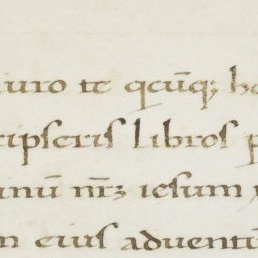 iuro te qcūq; ho
ripseris libros p
inū nr̄ʒ iesum
m eius aduentū